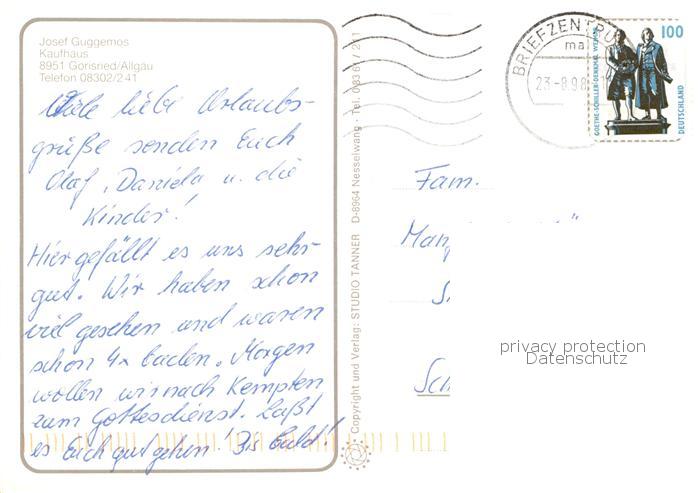 Josef Guggemos
Kaufhaus
8951 Görisried/Allgäu
Telefon 08302/2 41
Viele liebe Urlaubs-
grüße senden Euch
Olaf, Daniela u. die
Kinder!
Hier gefällt es uns sehr
gut. Wir haben schon
viel gesehen und waren
schon 4x baden. Morgen
wollen wir nach Kempten
zum Gottesdienst. Laßt
es Euch gut gehen! Bis bald!
Copyright und Verlag: STUDIO TANNER D-8964 Nesselwang · Tel. 08361/
BRIEFZENTRU
ma
23-8.98
100
GOETHE-SCHILLER-DENKMAL
DEUTSCHLAND
Fam.
privacy protection
Datenschutz